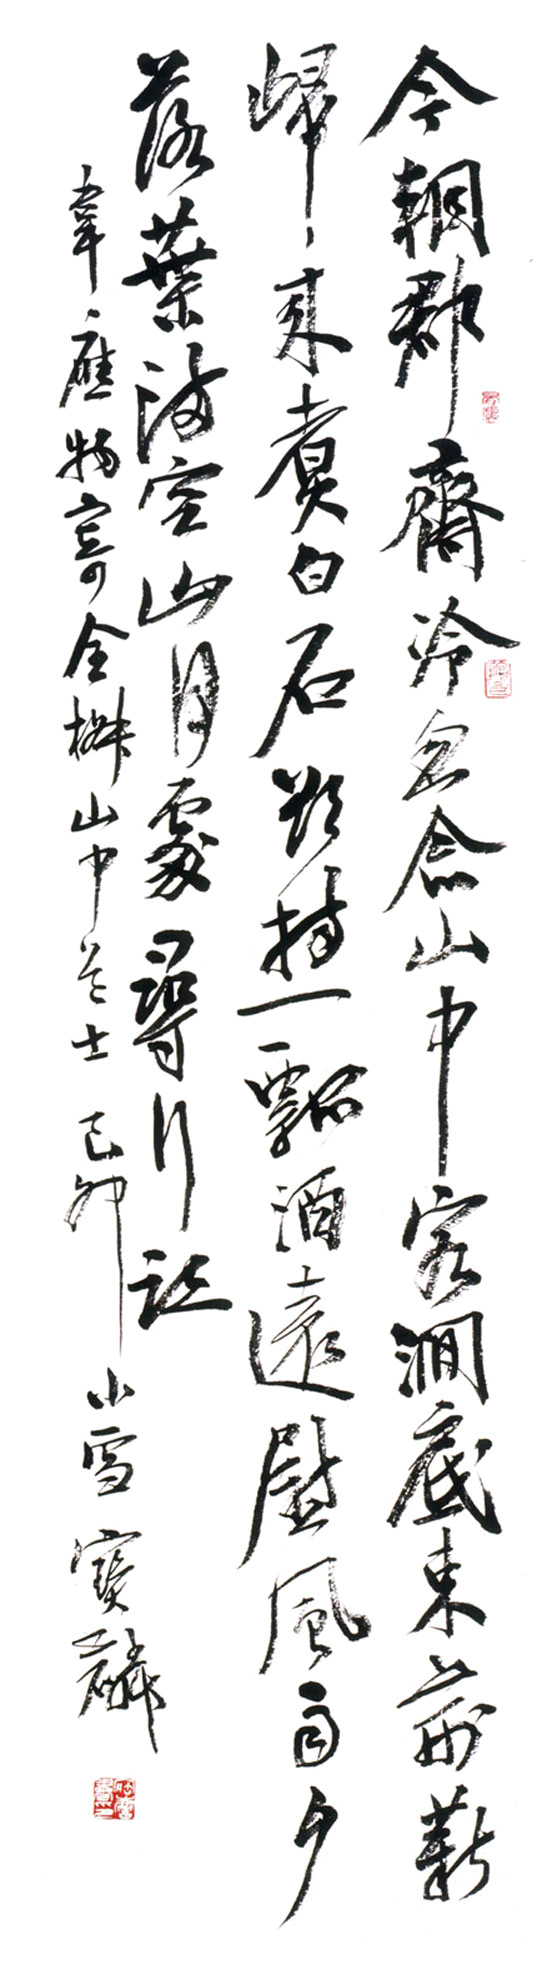 今朝郡齋冷忽念山中客澗底束荊薪
歸〻來煮白石欲持一瓢酒遠慰風雨夕
落葉滿空山何處尋行跡
韋應物寄全椒山中道士 己卯小雪 寶麟